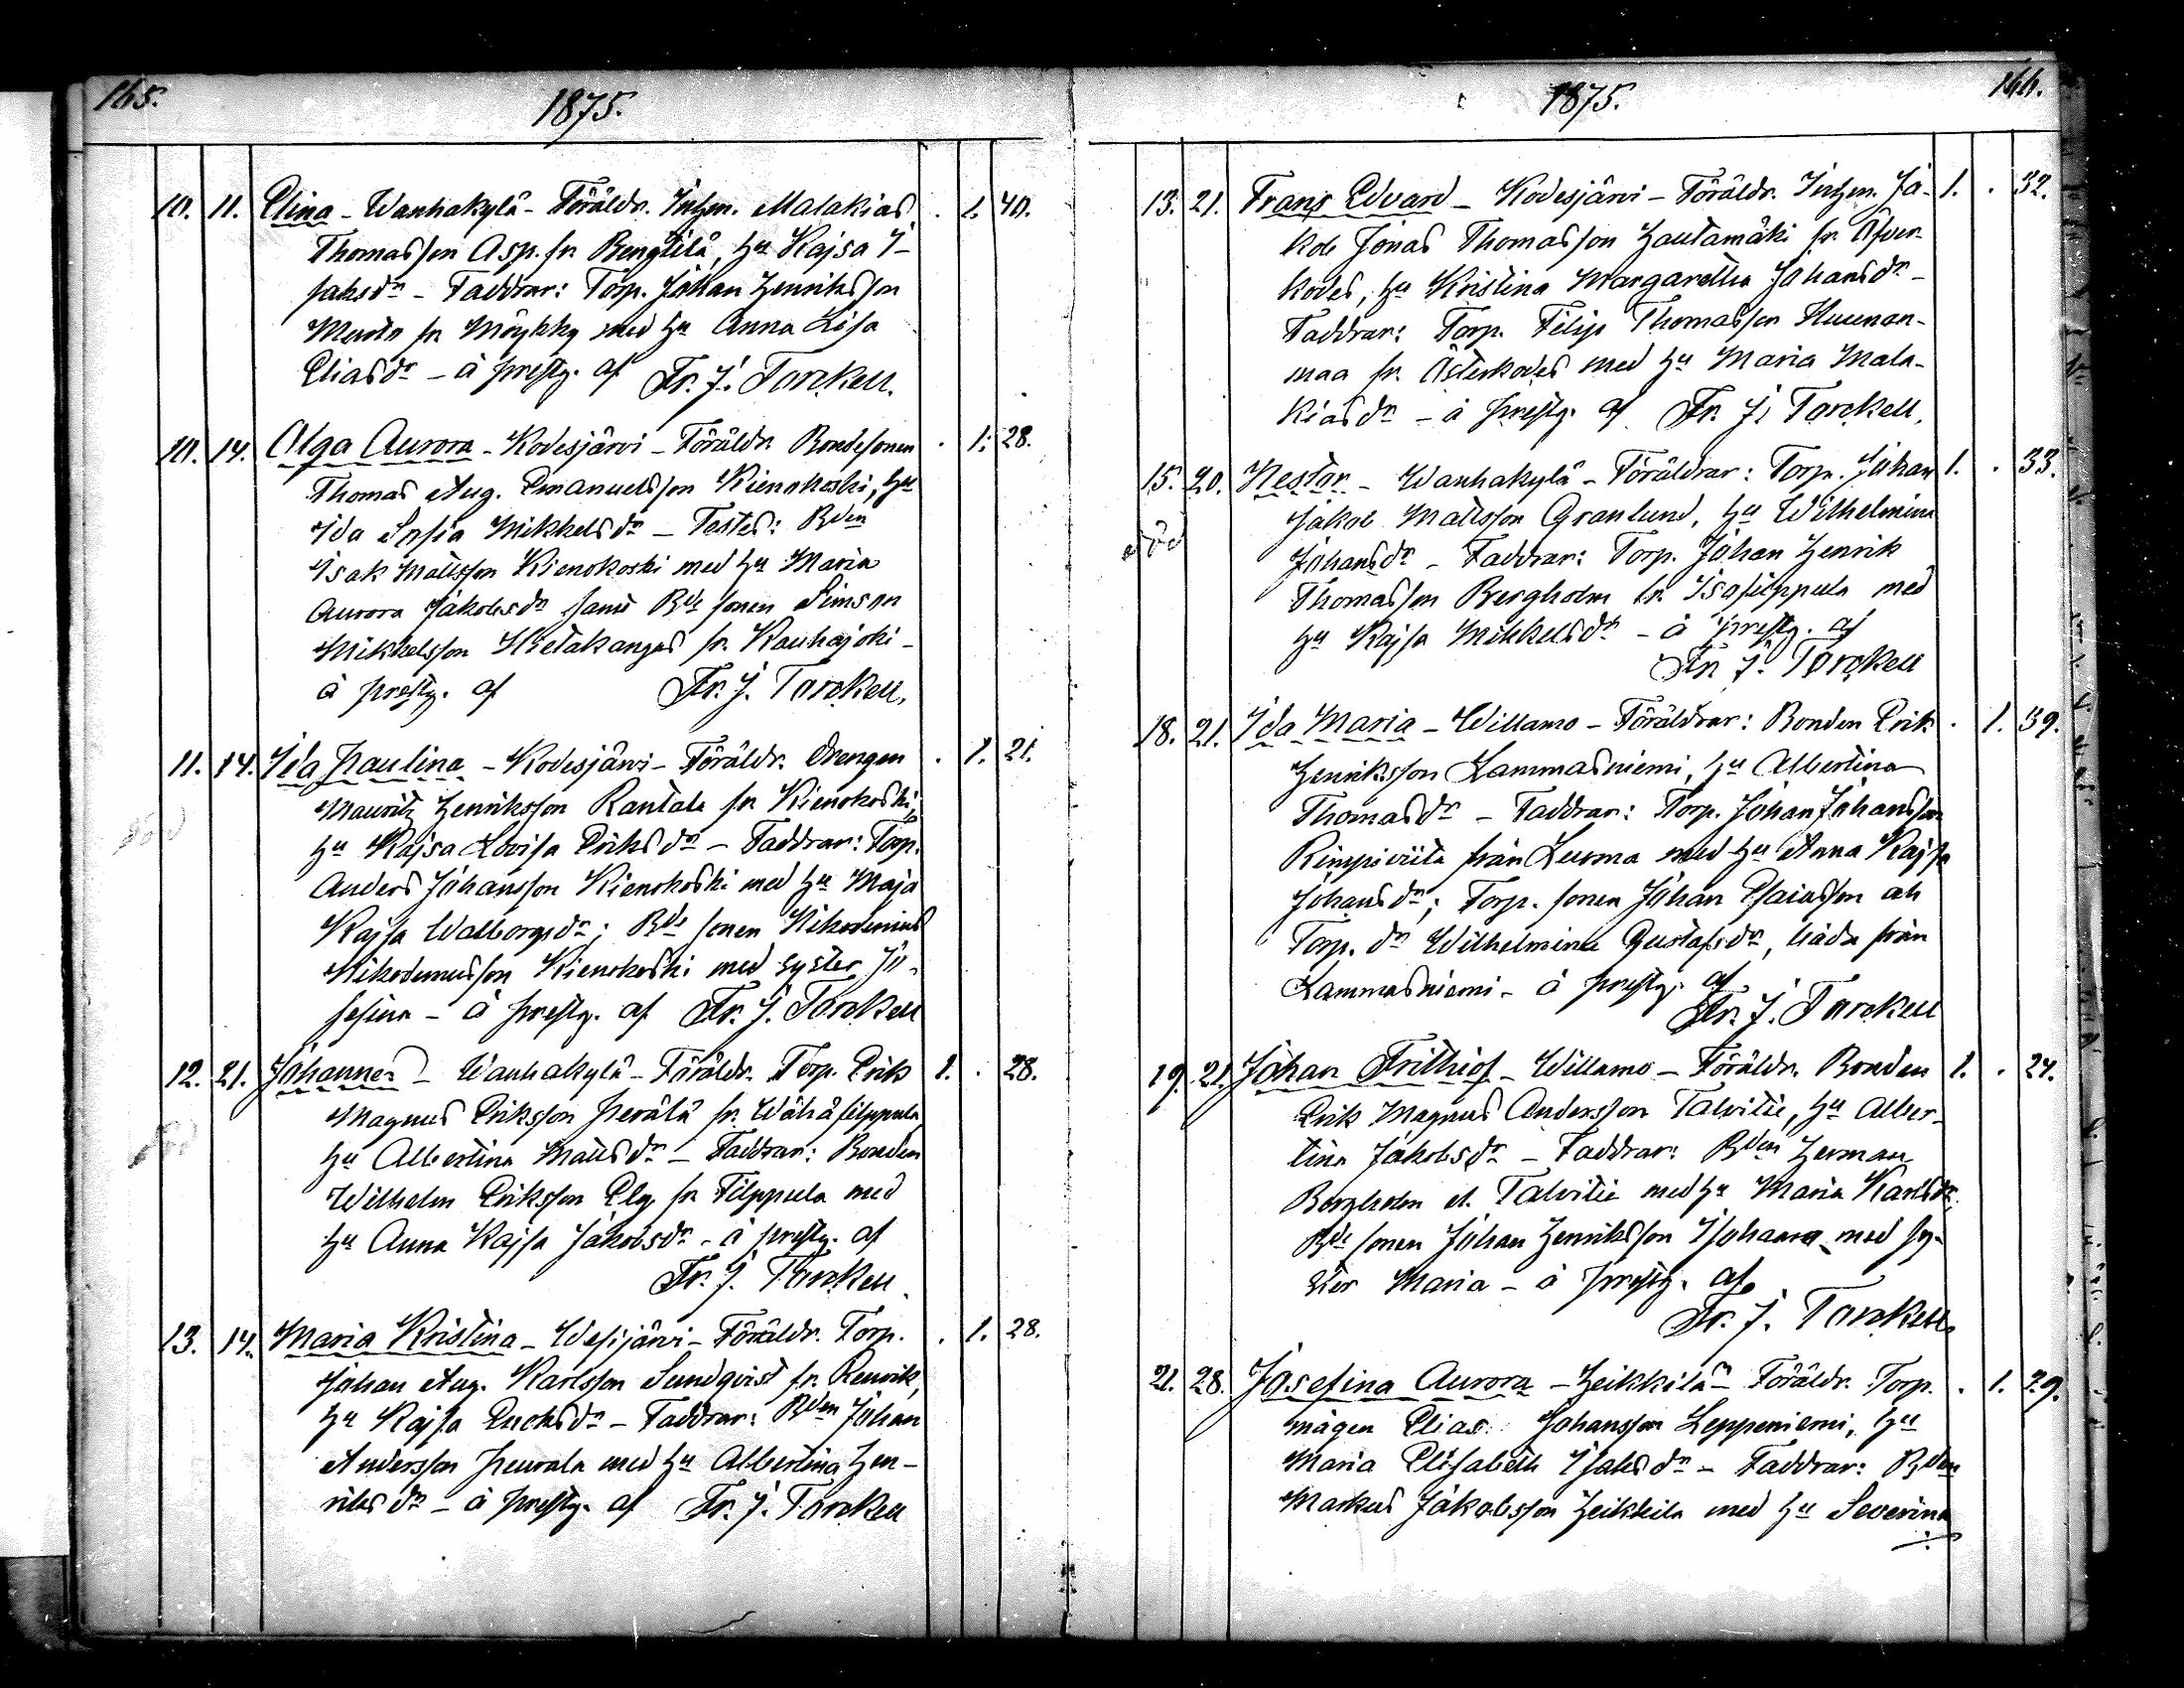 165.
1875.
10. 11. Elina - Wanhakylä - Föräldr. Inhsn. Malakias . 1. 40.
Thomasson Asp. fr. Bengtilä, hu Kajsa I-
saksdr - Faddrar: Torp. Johan Henriksson
fr. Möykky med hu Anna Lisa
Eliasdr - å prestg. af Fr. J. Torckell.
10. 14. Olga Aurora - Kodesjärvi - Föräldr. Bondesonen . 1. 28.
Thomas Aug. Emanuelsson Kienokoski, hu
Ida Sofia Mikkelsdr - Testes: Bden
Isak Mattsson Kienokoski med hu Maria
Aurora Jakobsdr samt Bde sonen Simson
Mikkelsson Hietakangas fr. Kauhajoki -
å prestg. af Fr. J. Torckell.
11. 14. Ida Paulina - Kodesjärvi - Föräldr. Drengen . 1. 21.
Mauritz Henriksson Rantala fr Kienokoski,
hu Kajsa Lovisa Eriksdr - Faddrar: Torp.
Anders Johansson Kienokoski med hu Maja
Kajsa Walborgsdr; Bde sonen Nikodemus
Nikodemusson Kienokoski med syster Jo-
sefina - å prestg. af Fr. J. Torckell
12. 21. Johannes - Wanhakylä - Föräldr. Torp. Erik 1. . 28.
död
Magnus Eriksson Perälä fr. Wähäfilppula
hu Albertina Mattsdr - Faddrar: Bonden
Wilhelm Eriksson Elg fr Filppula med
hu Anna Kajsa Jakobsdr - å prestg. af
Fr. J. Torckell
13. 14. Maria Kristina - Wesijärvi - Föräldr. Torp. . 1. 28.
Johan Aug. Karlsson Sundqvist fr.
hu Kajsa Enoksdr - Faddrar: Bden Johan
Andersson Peurala med hu Albertina Hen-
riksdr - å prestg. af Fr. J. Torckell
166.
1875.
13. 21. Frans Edvard - Kodesjärvi - Föräldr. Inhsn. Ja- 1. . 32.
kob Jonas Thomasson Hautamäki fr. Åfver-
kodes, hu Kristina Margaretha Johansdr -
Faddrar: Torp. Filip Thomasson Huunan-
maa fr. Österkodes med hu Maria Mala-
kiasdr - å prestg. af Fr. J. Torckell.
15. 20. Nestor - Wanhakylä - Föräldrar: Torp. Johan 1. . 33.
död
Jakob Mattsson Granlund, hu Wilhelmina
Johansdr - Faddrar: Torp. Johan Henrik
Thomasson Bergholm fr. Isofilppula med
hu Kajsa Mikkelsdr - å prestg. af
Fr. J. Torckell
18. 21. Ida Maria - Willamo - Föräldrar: Bonden Erik . 1. 39.
Henriksson Lammasniemi, hu Albertina
Thomasdr - Faddrar: Torp. Johan Johansson
Rimpiviita från Luoma med hu Anna Kajsa
Johansdr; Torp. sonen Johan Esaiasson och
Torp. dr Wilhelmina Gustafsdr, båda från
Lammasniemi - å prestg. af
Fr. J. Torckell
19. 21. Johan Frithiof - Willamo - Föräldr. Bonden 1. . 24.
Erik Magnus Andersson Talvitie, hu Alber-
tina Jakobsdr - Faddrar: Bden Herman
Bergholm el. Talvitie med hu Maria Karlsdr
Bde sonen Johan Henriksson Isohaara med sy-
ster Maria - å prestg. af
Fr. J. Torckell.
21. 28. Josefina Aurora - Heikkilä - Föräldr. Torp. . 1. 29.
mågen Elias Johansson Leppeniemi, hu
Maria Elisabeth Isaksdr - Faddrar: Bden
Markus Jakobsson Heikkilä med hu Severina